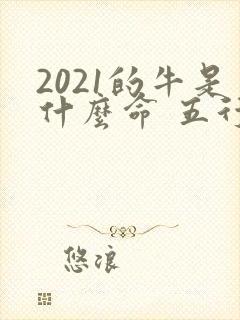 2021的牛是
什麼命 五行
悠浪